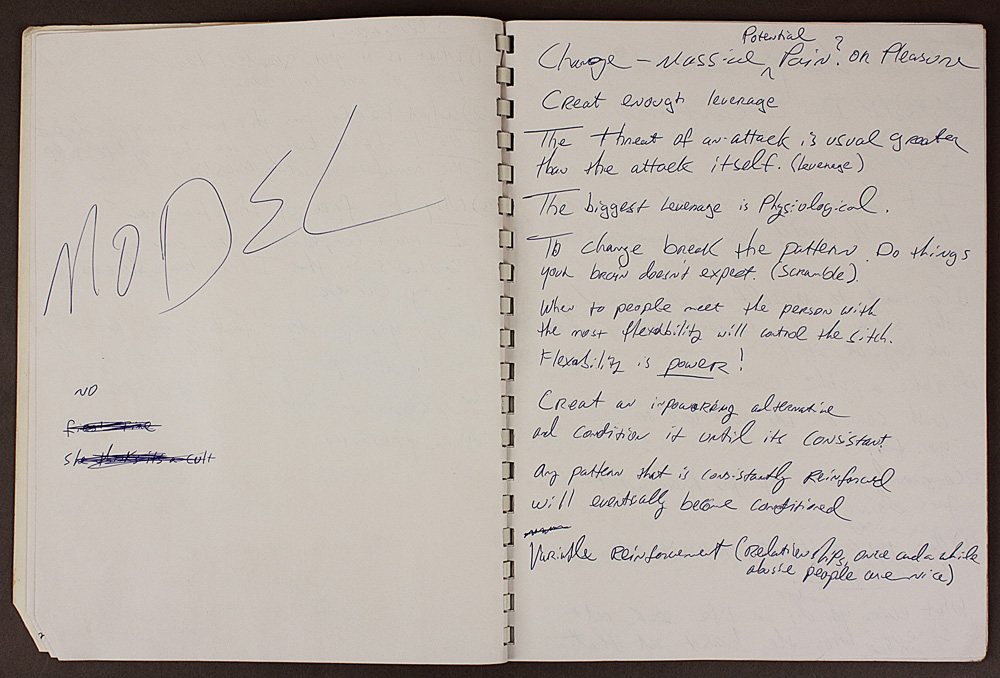 MODEL
NO
front time
she thinks its a cult
Potential
Change – Massive ^ Pain? or Pleasure
Creat enough leverage
The threat of an attack is usual greater
than the attack itself. (leverage)
The biggest leverage is Physiological.
To change break the pattern. Do things
your brain doesn't expect. (Scramble).
When to people meet the person with
the most flexability will control the sitch.
Flexability is power!
Creat an inpowering alternative
and condition it until its consistant
Any pattern that is consistantly Reinforced
will eventually become conditioned
Variable Reinforcement (relationships, once and a while
abusive people are nice)